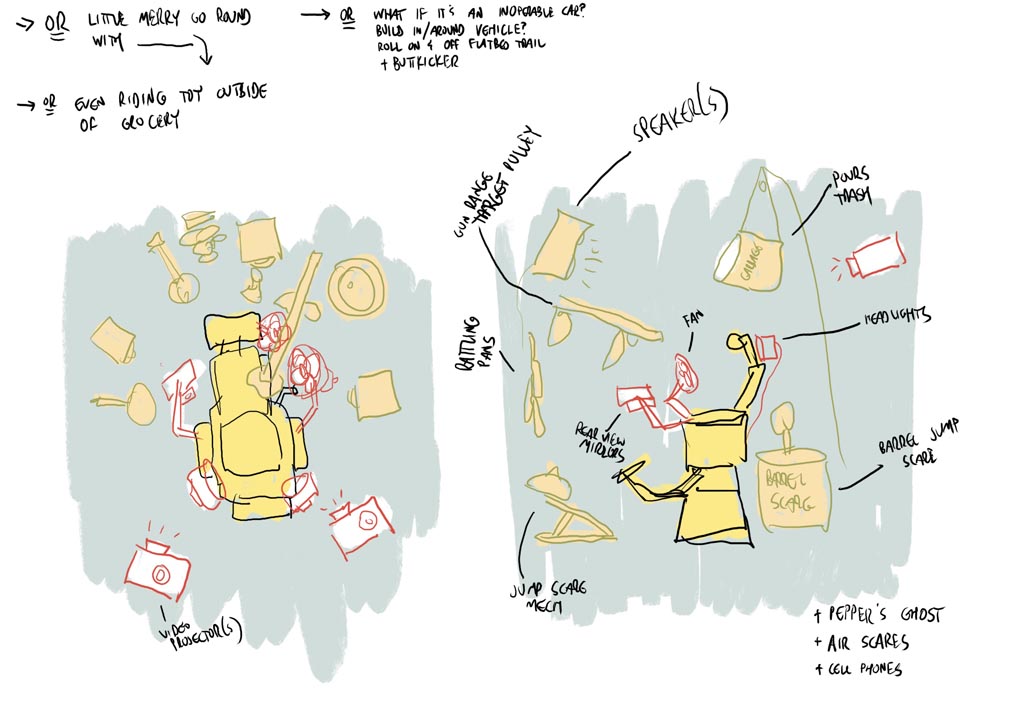 → OR LITTLE MERRY GO ROUND
WITH ______
→ OR EVEN RIDING TOY OUTSIDE
OF GROCERY
→ OR WHAT IF IT'S AN INOPERABLE CAR?
BUILD IN/AROUND VEHICLE?
ROLL ON & OFF FLATBED TRAIL
+ BUTTKICKER
SPEAKER(S)
GUN RANGE
TARGET PULLEY
POURS
TRASH
GARBAGE
HEADLIGHTS
FAN
RATTLING
PANS
REAR VIEW
MIRRORS
BARREL JUMP
SCARE
BARREL
SCARE
JUMP SCARE
MECH
VIDEO
PROJECTOR(S)
+ PEPPER'S GHOST
+ AIR SCARES
+ CELL PHONES